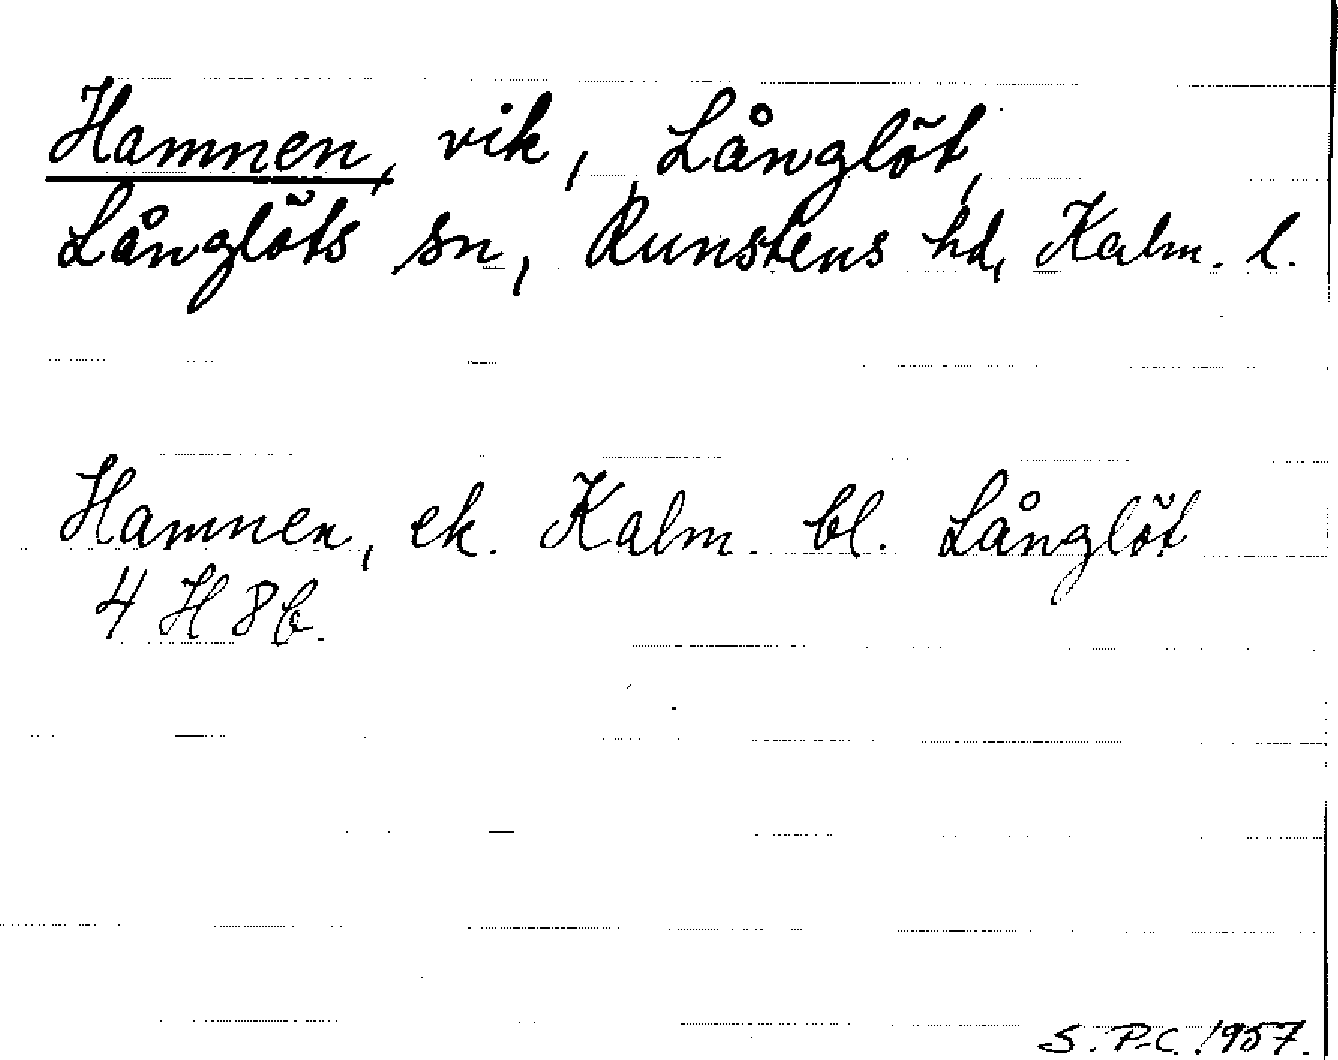 Hamnen, vik, Långlöt,
Långlöts sn, Runstens hd, Kalm. l.
Hamnen, ek. Kalm. bl. Långlöt
4 H 8 b.
S. P-C. 1957.